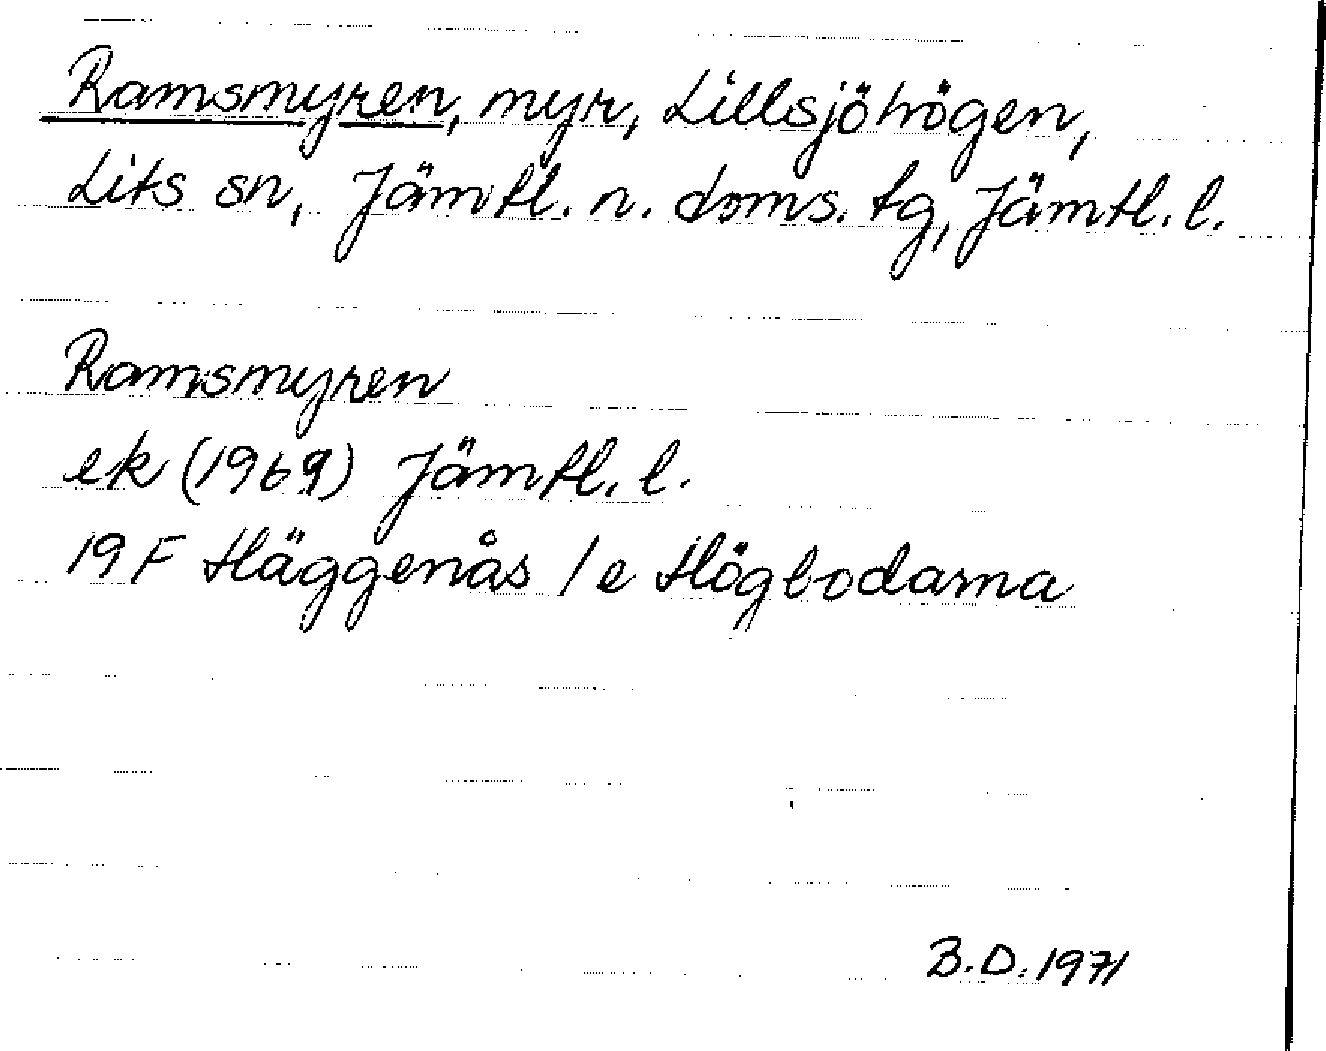 Ramsmyren, myr, Lillsjöhögen,
Lits sn, Jämtl. n. doms. tg, Jämtl. l.
Ramsmyren
ek (1969) Jämtl. l.
19 F Häggenås 1 e Högbodarna
B.D. 1971